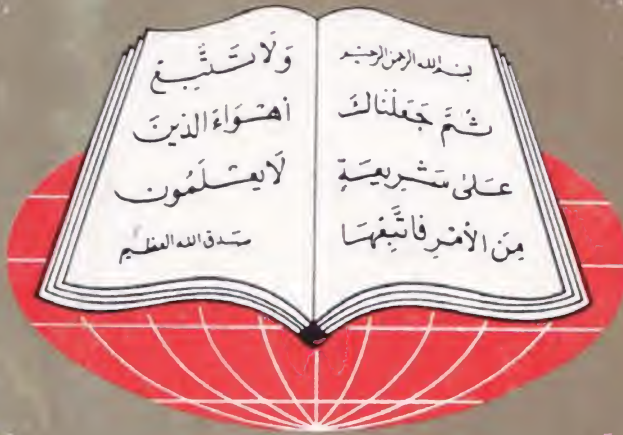 بسم الله الرحمن الرحيم
ثُمَّ جَعَلْنَاكَ
عَلىٰ شَرِيعَةٍ
مِنَ الأَمْرِ فَاتَّبِعْهَا
وَلَا تَتَّبِعْ
أَهْوَاءَ الذينَ
لَا يعْلَمُون
صدق الله العظيم